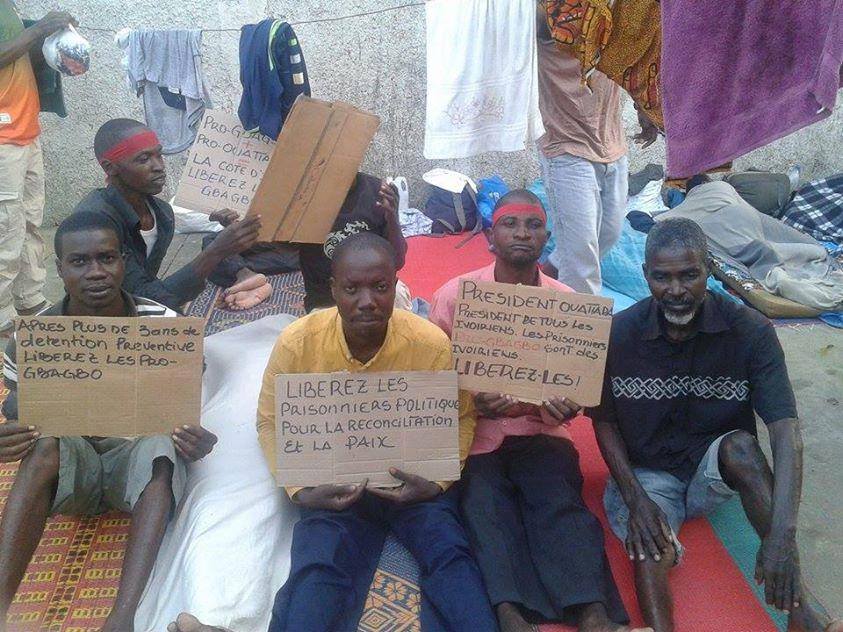 PRO-GBAGBO
+
PRO-OUATTARA
=
LA COTE D'
LIBEREZ LES
GBAGBO
APRES PLUS DE 3ans de
detention Preventive
LIBEREZ LES PRO-
GBAGBO
LIBEREZ LES
PRISONNIERS POLITIQUE
POUR LA RECONCILIATION
Et LA PAIX
PRESIDENT OUATTARA
PRESIDENT DE TOUS LES
IVOIRIENS. LES PRISONNIERS
PRO-GBAGBO SONT DES
IVOIRIENS.
LIBEREZ-LES!